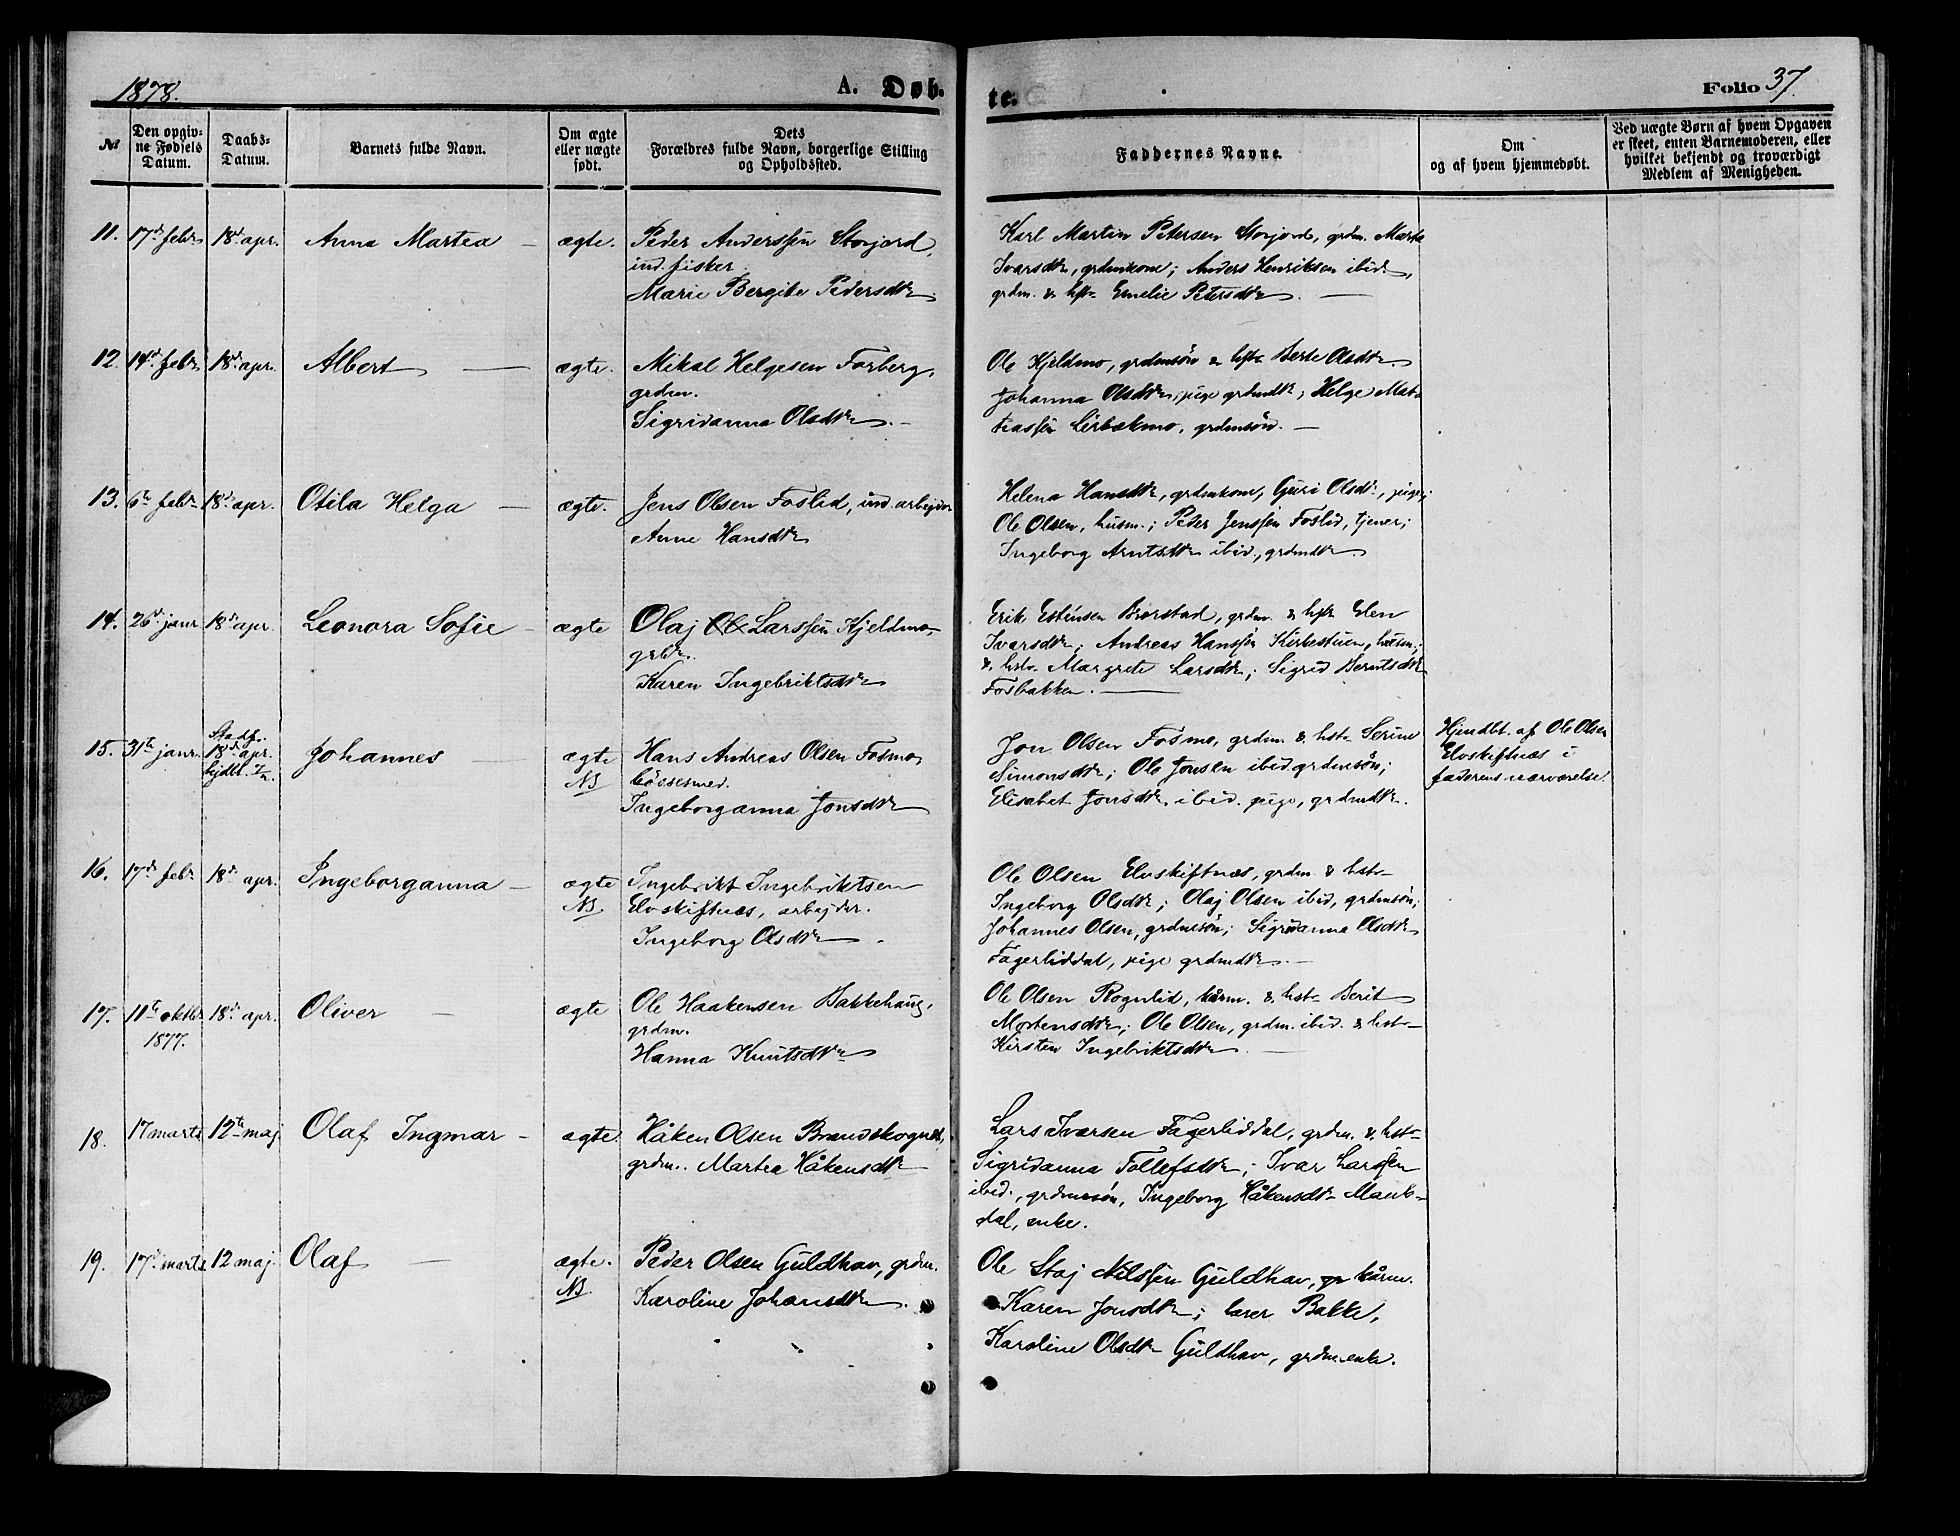 1878.
A. Døb-
te.
Folio 37.
№
Den opgiv-
ne Fødsels
Datum.
Daabs-
Datum.
Barnets fulde Navn.
Om ægte
eller uægte
født.
Dets
Forældres fulde Navn, borgerlige Stilling
og Opholdssted.
Faddernes Navne.
Om
og af hvem hjemmedøbt.
Ved uægte Børn af hvem Opgaven
er skeet, enten Barnemoderen, eller
hvilket bekjendt og troværdigt
Medlem af Menigheden.
11. 17d febr. 18d apr. Anna Martea — ægte. Peder Anderssen Storjord,
ind. fisker
Marie Bergite Pedersdtr
Karl Martin Petersen Storjord, grdm. Marta
Ivarsdtr, grdmkone; Anders Henriksen ibid,
grdm. & hstr Emelie Petersdtr. —
12. 14d febr. 18d apr. Albert — ægte. Mikal Helgesen Forberg,
grdm.
Sigridanna Olsdtr. -
Ole Kjeldmo, grdmsön & hstr Berte Olsdtr.
Johanna Olsdtr, pige grdmdtr; Helge Mat-
tiassen Lerbækmo, grdmsön. —
13. 6te febr 18d apr. Otila Helga — ægte. Jens Olsen Foslid, ind. arbejder
Anne Hansdtr
Helena Hansdtr, grdmkone, Guri Olsdtr, pige;
Ole Olsen, husm.; Peder Jenssen Foslid, tjener;
Ingeborg Arntsdtr ibid., grdmdtr.
14. 26d janr 18d apr. Leonora Sofie — ægte Olaj Ole Larssen Kjeldmo,
grbr.
Karen Ingebriktsdtr
Erik Estensen Brorstad, grdm. & hstr Elen
Ivarsdtr; Andreas Hanssen Kirkestuen, husm.
& hstr Margrete Larsdtr; Sigrid Berntsdtr
Fosbakken. —
15. 31te janr. Stadf.
18d apr.
hjdbt. Johannes — ægte
NB Hans Andreas Olsen Fosmo
bössesmed.
Ingeborganna Jonsdtr
Jon Olsen Fosmo, grdm. & hstr Serine
Simonsdtr; Ole Jonsen ibid. grdmsön;
Elisabet Jonsdtr ibid. pige, grdmdtr.
Hjmdbt. af Ole Olsen
Elvskiftnæs i
faderens nærværelse.
16. 17d febr. 18d apr. Ingeborganna — ægte
NB Ingebrikt Ingebriktsen
Elvskiftnæs, arbejder.
Ingeborg Olsdtr.
Ole Olsen Elvskiftnæs, grdm. & hstr
Ingeborg Olsdtr; Olaj Olsen ibid, grdmsön;
Johannes Olsen, grdmsön; Sigridanna Olsdtr
Fagerliddal, pige grdmdtr. —
17. 11te oktbr
1877. 18d apr. Oliver — ægte Ole Haakensen Bakkehaug,
grdm.
Hanna Knutsdtr
Ole Olsen Rognlid, kårm. & hstr Berit
Mortensdtr; Ole Olsen, grdm. ibid. & hstr
Kirsten Ingebriktsdtr. —
18. 17 marts 12te maj Olaf Ingmar — ægte Håken Olsen Brandskognes,
grdm. Martea Håkensdtr
Lars Ivarsen Fagerliddal, grdm. & hstr
Sigridanna Tollefsdtr; Ivar Larssen
ibid., grdmsön, Ingeborg Håkensdtr Mauk-
dal, enke.
19. 17d marts 12 maj Olaf — ægte.
NB. Peder Olsen Guldhav, grdm.
Karoline Johansdtr.
Ole Staj Nilssen Guldhav, kårm.
Karen Jonsdtr; lærer Bakke,
Karoline Olsdtr Guldhav, grdmenke.